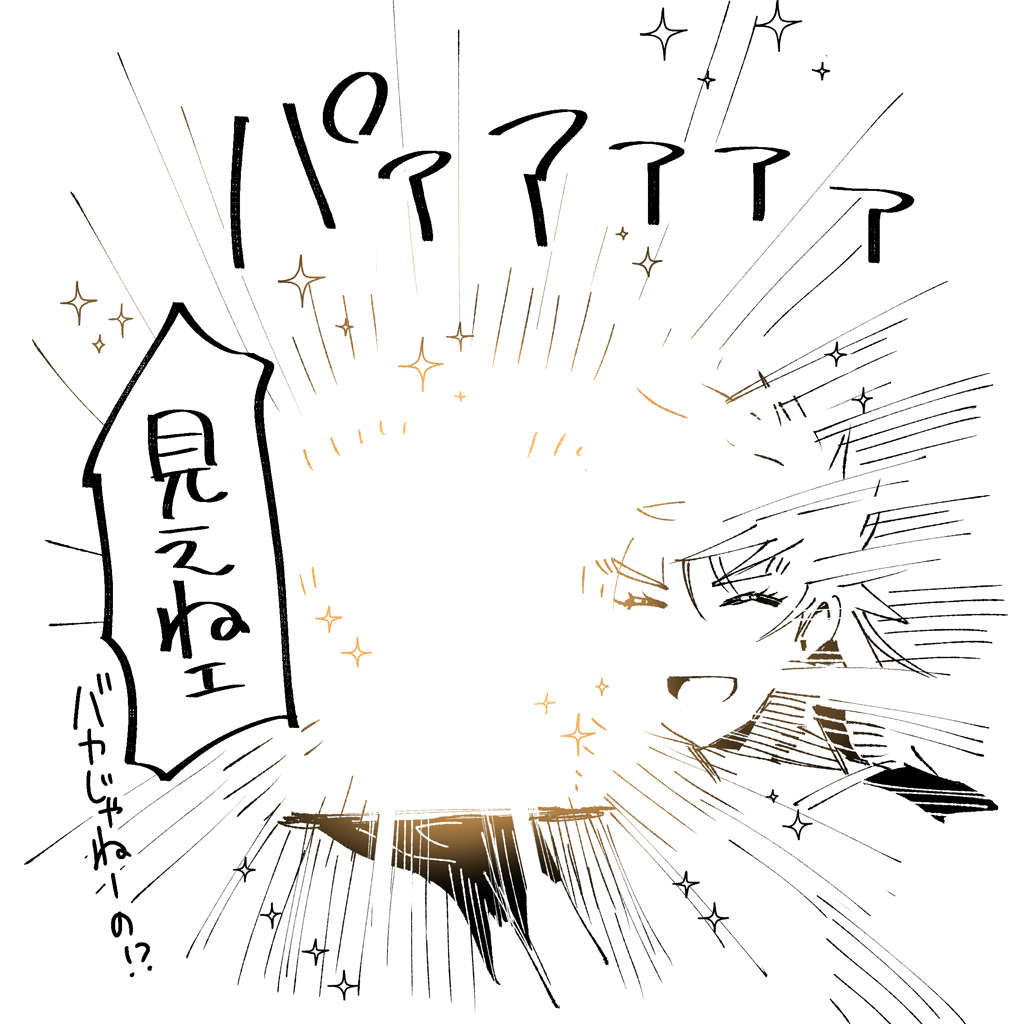 パァアァァァ
見えねェ
バカじゃねーの!?